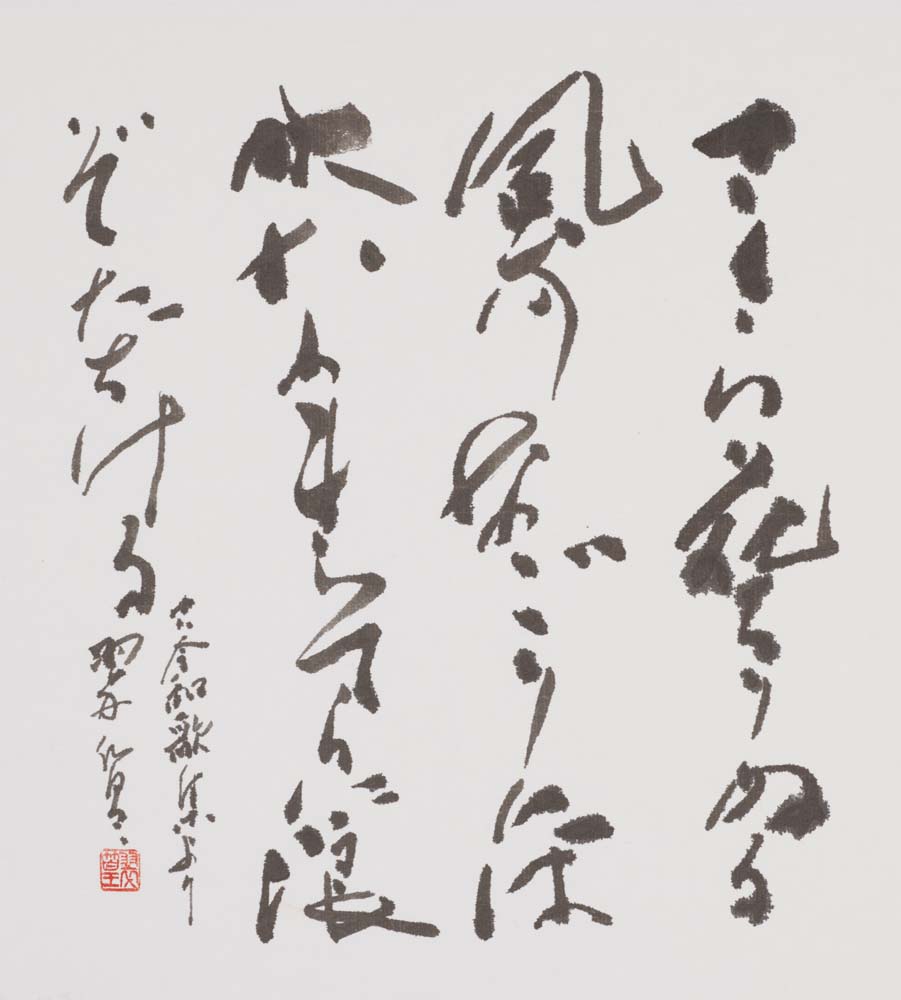 さくら花ちりぬる
風のなごりには
水なきそらに浪
ぞたちける
古今和歌集より